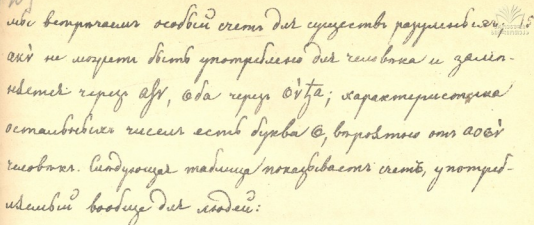 мы встрѣчаемъ особый счетъ для существъ разумныхъ; 15
не можетъ быть употреблено для человѣка и замѣ-
няется черезъ аӡы, ѳба черезъ характеристика
остальныхъ чиселъ есть буква ѳ, вѣроятно отъ
человѣкъ. Слѣдующая таблица показываетъ счетъ, употреб-
ляемый вообще для людей: